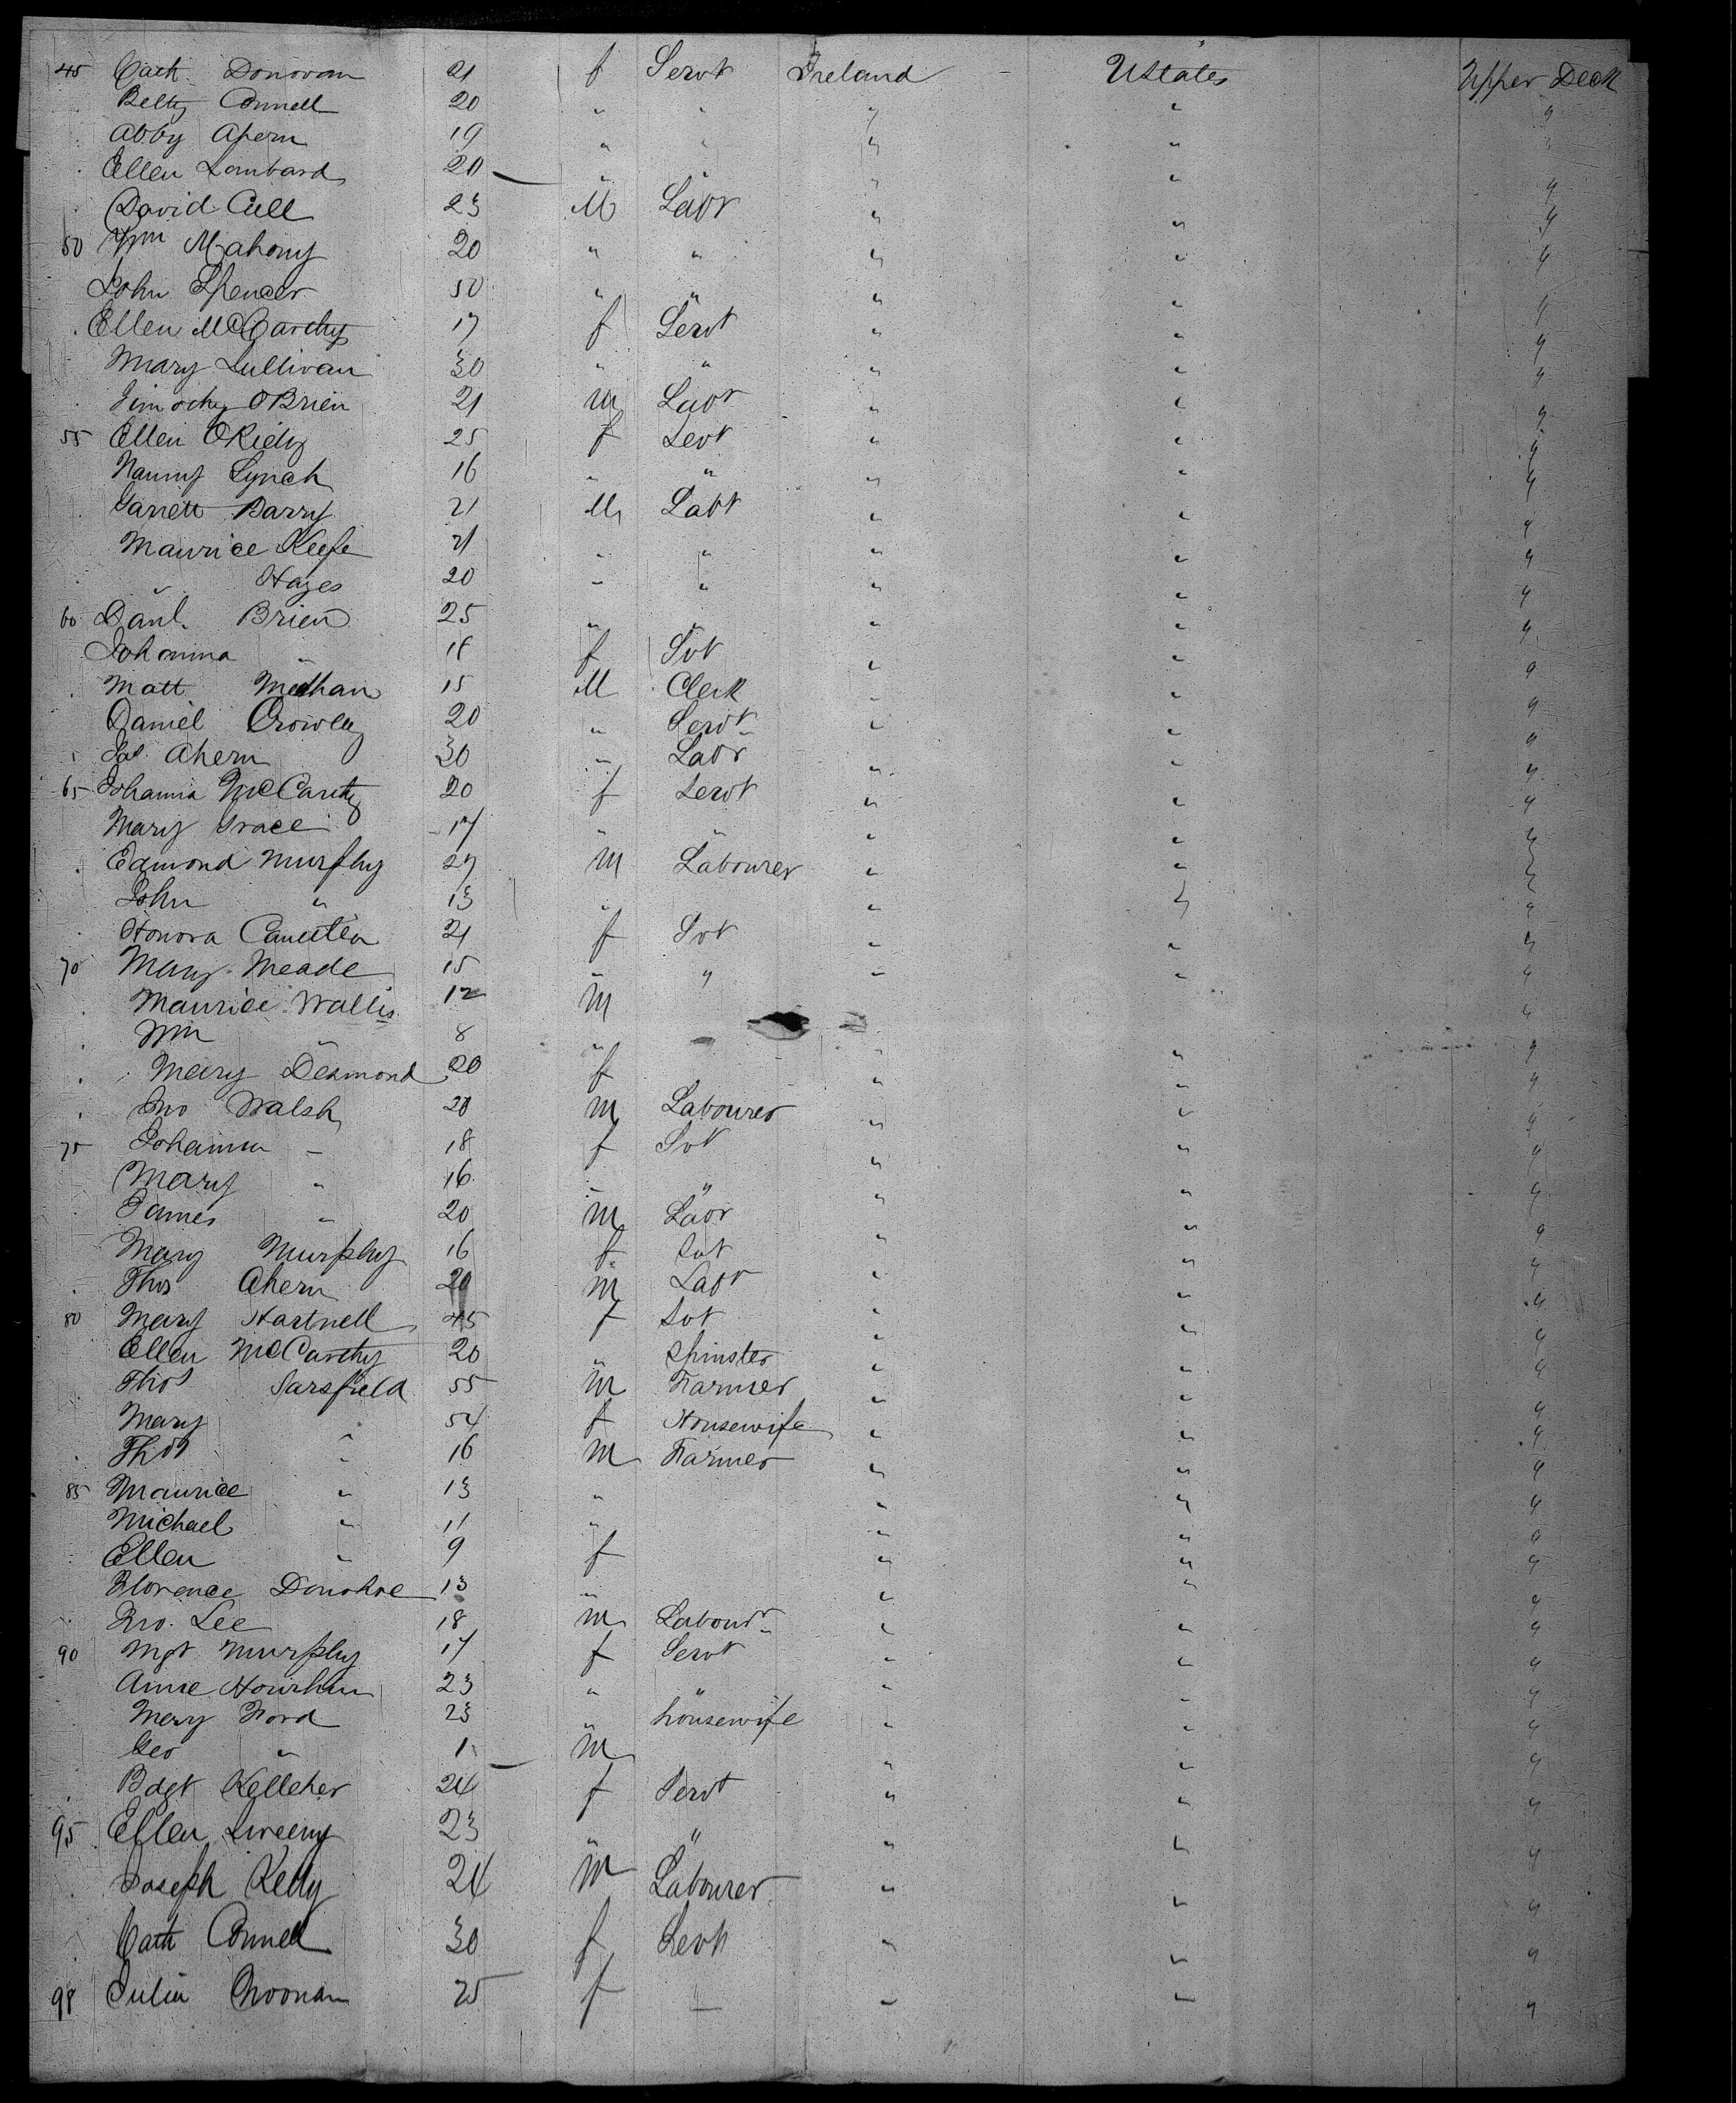 45 Cath. Donovan 21 f Servt Ireland UStates Upper Deck
Betty Connell 20 " " " " "
Abby Ahern 19 " " " " "
Ellen Lombard 20 " " " " "
David Cull 23 M Labr " " "
50 Wm Mahony 20 " " " " "
John Spencer 50 " " " " "
Ellen McCarthy 17 f Servt " " "
Mary Sullivan 30 " " " " "
Timothy OBrien 21 M Labr " " "
55 Ellen ORiely 25 f Sevt " " "
Nanny Lynch 16 " " " " "
Garrett Barry 21 M Labr " " "
Maurice Keefe 21 " " " " "
" Hayes 20 " " " " "
60 Danl. Brien 25 " " " " "
Johanna " 18 f Svt " " "
Matt Meehan 15 M Clerk " " "
Daniel Crowley 20 " Servt " " "
Jas. Ahern 30 " Labr " " "
65 Johanna McCarthy 20 f Servt " " "
Mary Grace 17 " " " " "
Edmond Murphy 27 M Labourer " " "
John " 13 " " " "
Honora 21 f Svt " " "
70 Mary Meade 15 " " " " "
Maurice Wallis 12 M "
Wm " 8 " " " "
Mary Desmond 20 f " " "
Jno Walsh 20 M Labourer " " "
75 Johanna " 18 f Svt " " "
Mary " 16 " " " " "
James " 20 M Labr " " "
Mary Murphy 16 f Svt " " "
Thos Ahern 20 M Labr " " "
80 Mary Hartnell 45 f Svt " " "
Ellen McCarthy 20 " Spinster " " "
Thos Sarsfield 55 M Farmer " " "
Mary " 54 f Housewife " " "
Thos " 16 M Farmer " " "
85 Maurice " 13 " " " "
Michael " 11 " " " "
Ellen " 9 f " " "
Florence Donohoe 13 " " " "
Jno. Lee 18 M Labourr " " "
90 Mgt Murphy 17 f Servt " " "
Anne Hourihan 23 " " " " "
Mary Ford 23 " housewife " " "
Geo " 1 M " " "
Bdgt Kelleher 24 f Servt " " "
95 Ellen Sweeny 23 " " " " "
Joseph Kelly 24 M Labourer " " "
Cath Connell 30 f Servt " " "
98 Julia Noonan 25 f — " " "